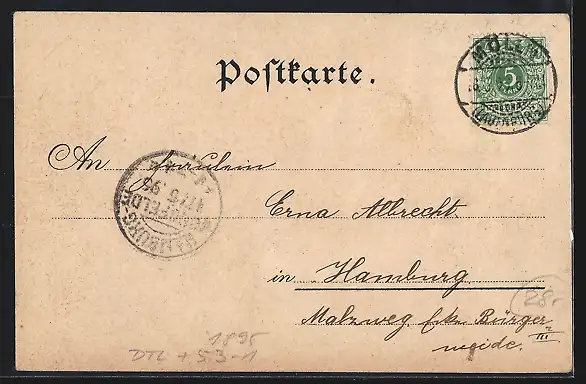 Postkarte.
MÖLLN
5
LAUENBURG
An Fräulein
Erna Albrecht.
in Hamburg
Malzweg Ecke Bürger
III
weide.
HAMBURG-
17/6.95
28.-
1895
DTL + 53-1